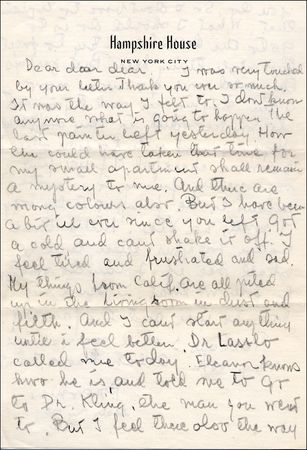 Hampshire House
NEW YORK CITY
Dear dear dear. I was very touched
by your letter. Thank you ever so much.
It was the way I felt to. I dont know
anymore what is going to happen. The
last painter left yesterday. How
one could have taken that time for
my small apartment shall remain
a mystery to me. And there are
more colours also. But I have been
a bit ill ever since you left. Got
a cold and cant shake it off. I
feel tired and frustrated and sad.
My things from Calif. are all piled
up in the living room in dust and
filth. And I cant start anything
until i feel better. Dr Laszlo
called me today. Eleanor knows
who he is, and told me to go
to Dr. Kling, the man you went
to. But I feel there also the way